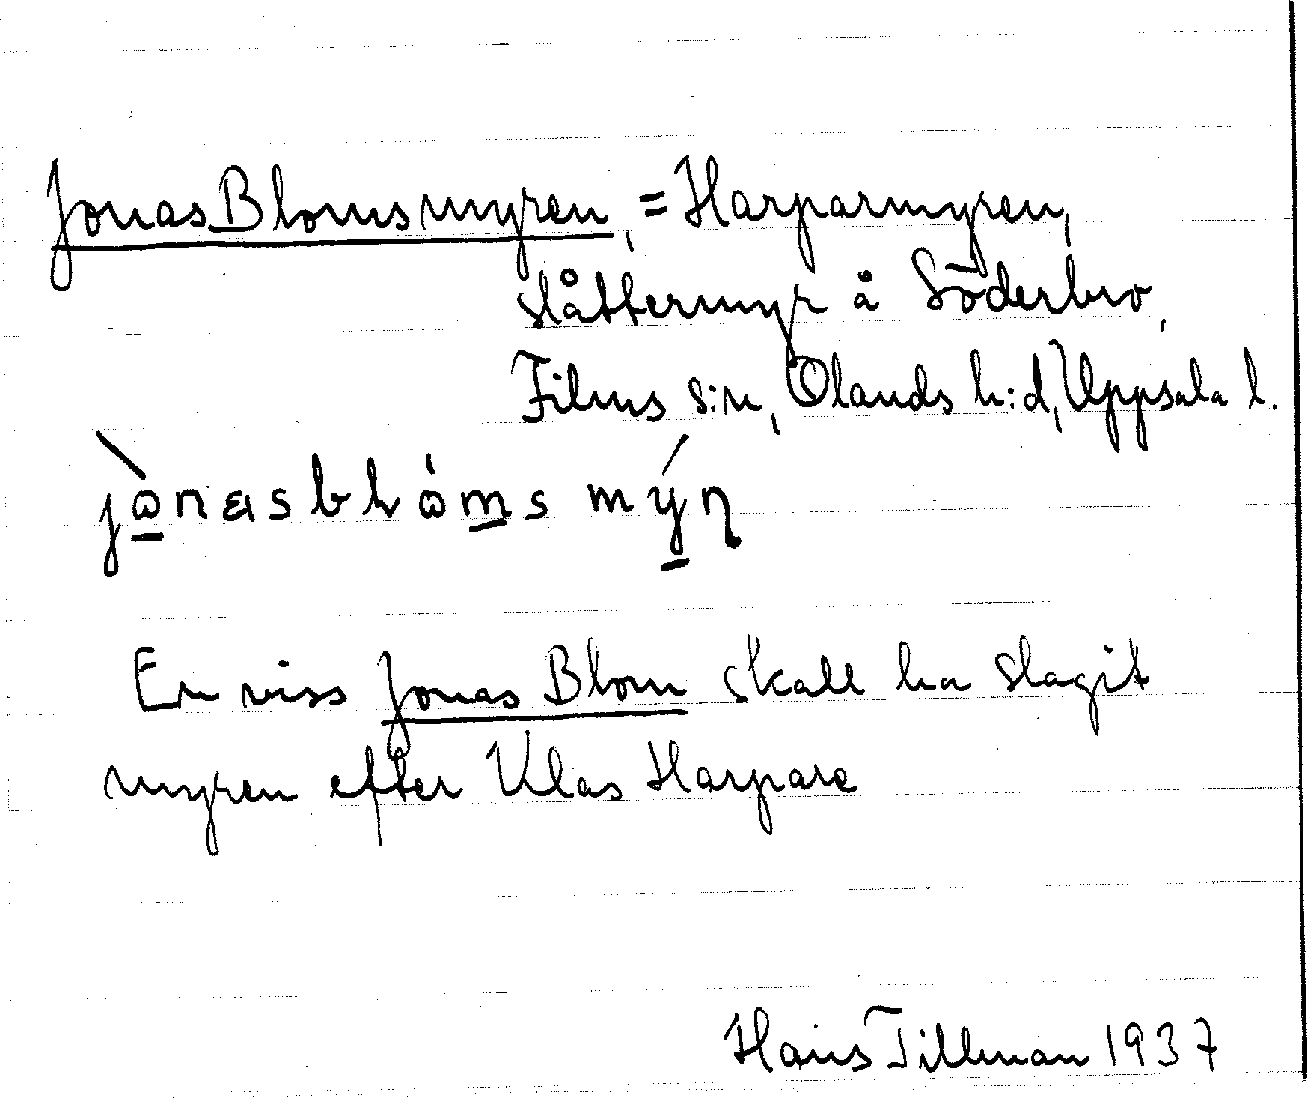 Jonas Blomsmyren, = Harparmyren,
slåttermyr å Söderbro,
Films s:n, Olands h:d, Uppsala l.
jònasblóms mýn
En viss Jonas Blom skall ha slagit
myren efter Klas Harpare
Hans Tillman 1937